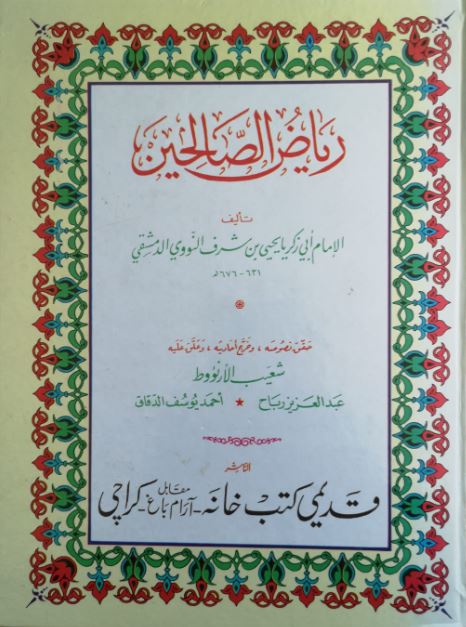 رِيَاضُ الصَّالِحِين
تأليف
الإمام أبي زكريا يحيى بن شرف النَّووي الدمشقي
٦٣١ - ٦٧٦ هـ
حَقّقَ نصُوصَه، وخَرّجَ أحَاديثه، وَعَلّقَ عَليه
شعَيب الأرنؤوط
عَبد العَزيز ربَاح ★ أحمَد يُوسُف الدقاق
الناشر
قدیمی کتب خانہ - مقابل آرام باغ - کراچی